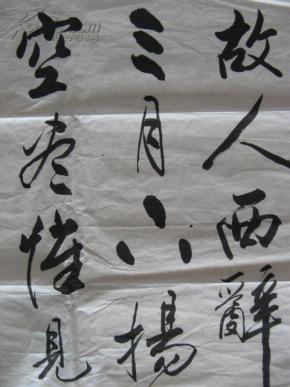 故人西辭
三月下揚
空盡惟見